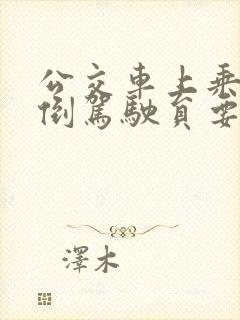 公交車上乘
倒駕駛員要
澤木